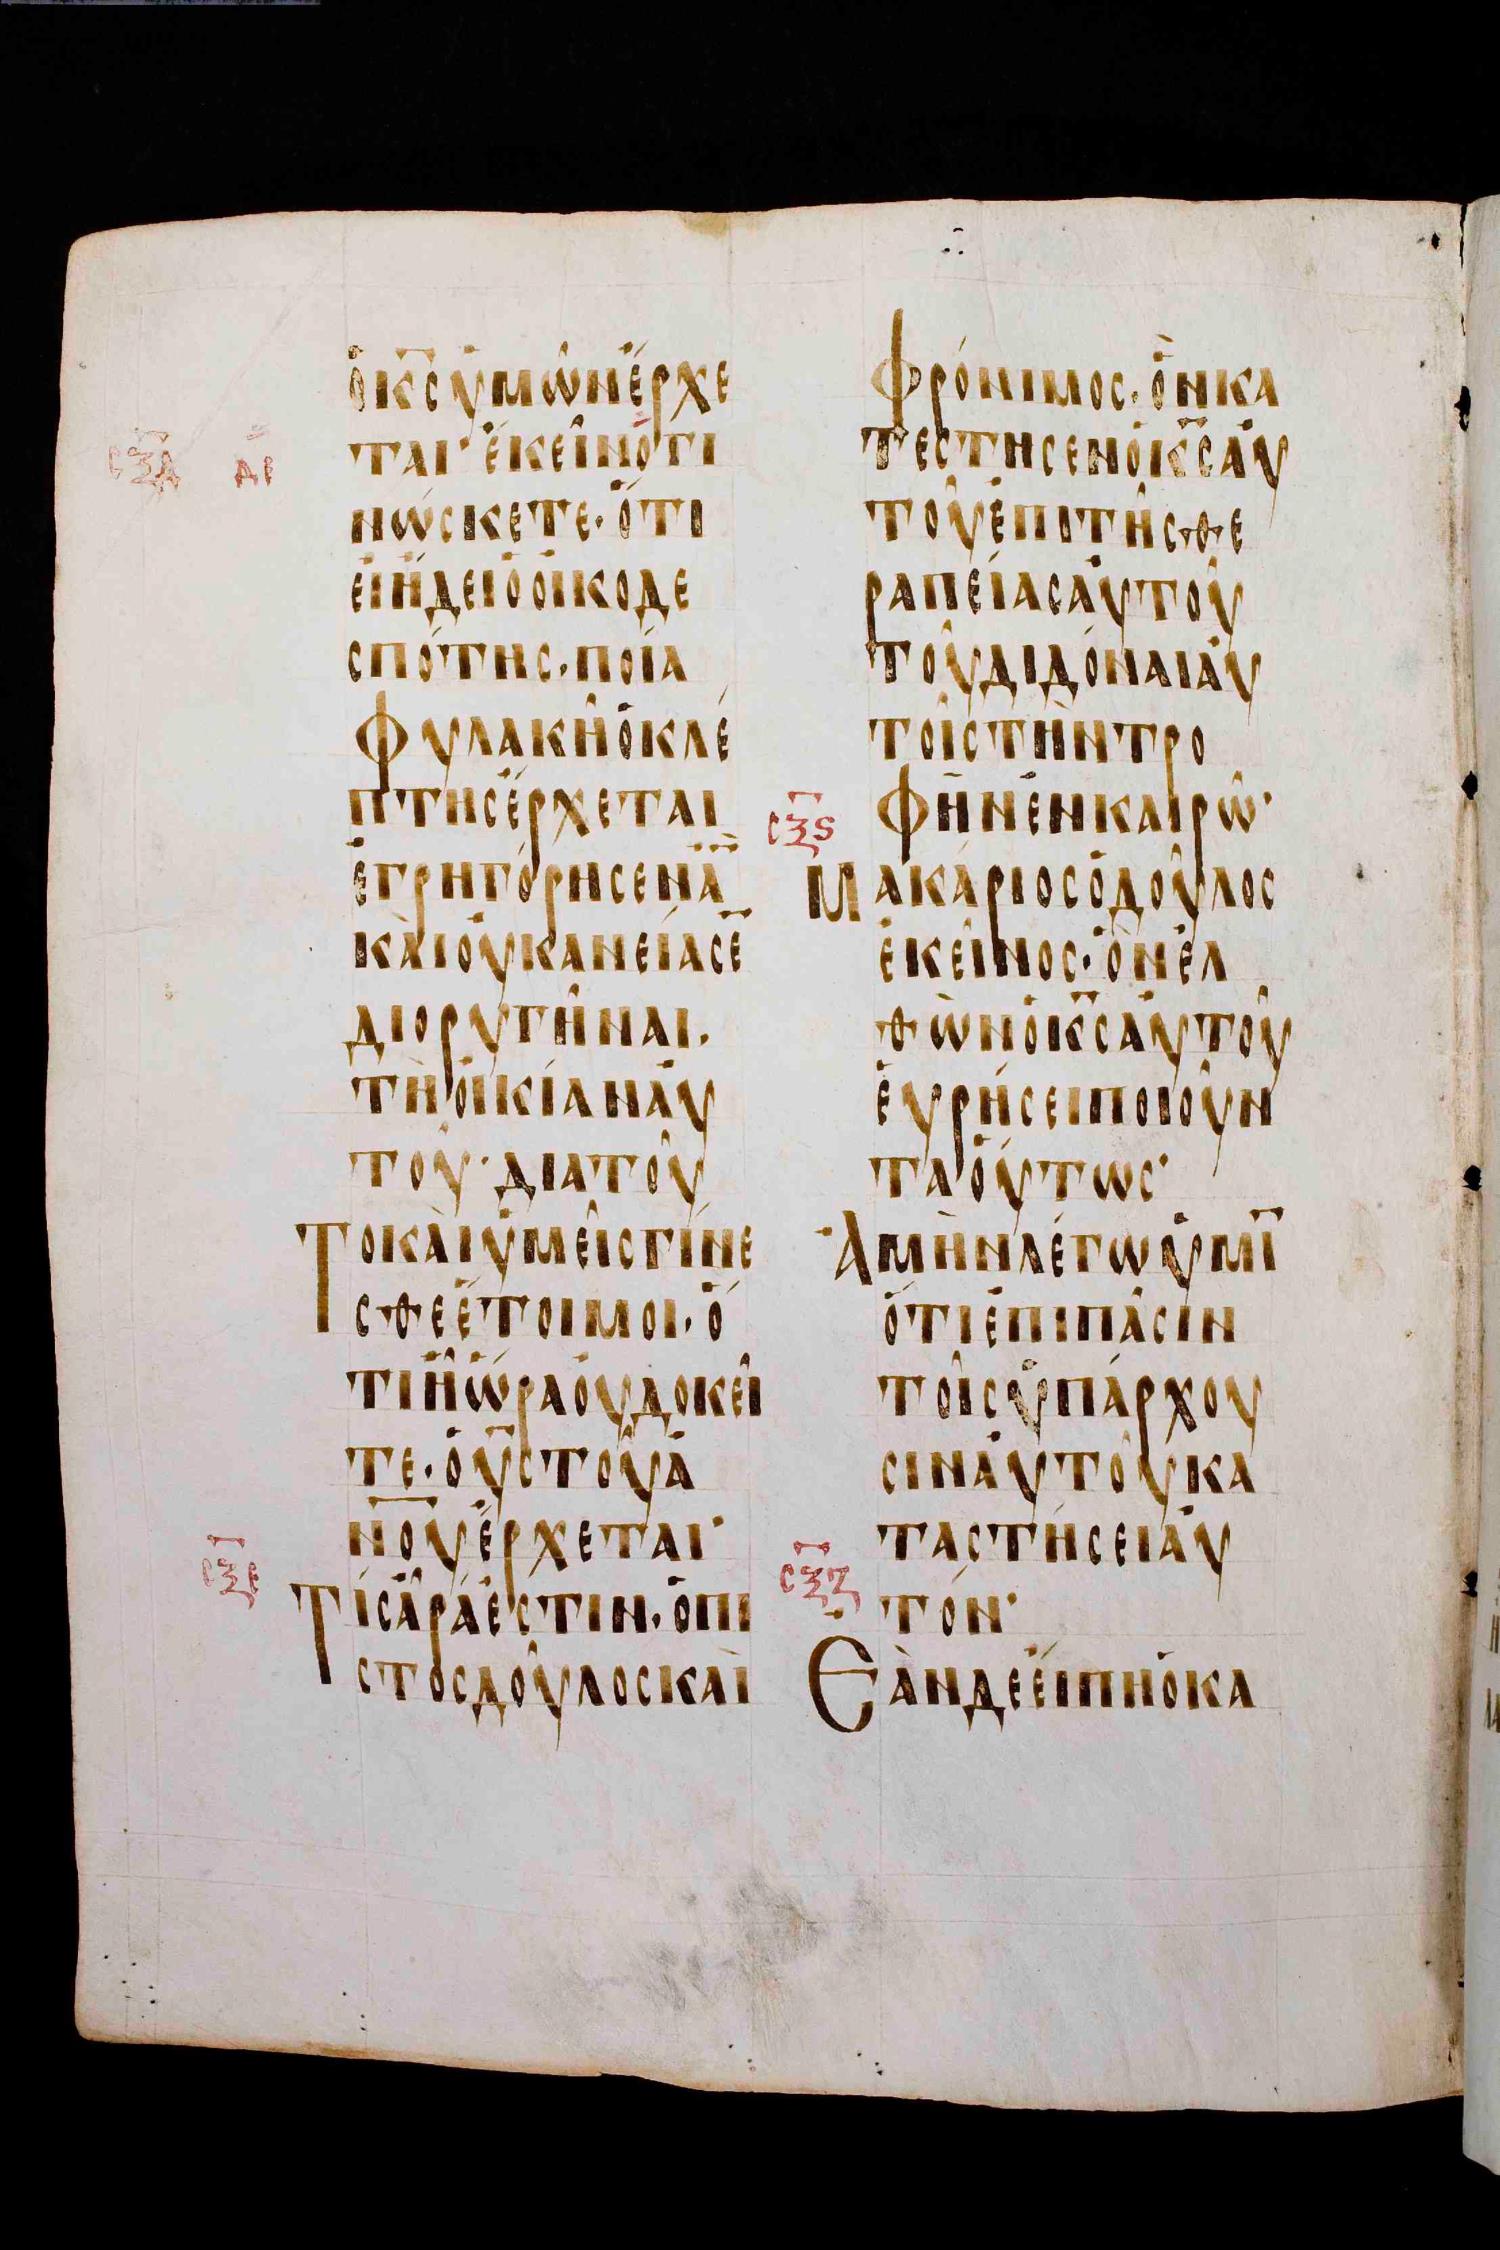 ὁ κ̅ς̅ ὑμῶν ἔρχε
ται· ἐκεῖνο γι
νώσκετε· ὅτι
εἰ ἤδει ὁ οἰκοδε
σπότης· ποία
φυλακῆ ὁ κλέ
πτης ἔρχεται
ἐγρηγόρησεν ἂ
καὶ οὐκ ἂν εἴασε
διορυγῆναι·
τὴ οἰκίαν αὐ
τοῦ· διατοῦ
το καὶ ὑμεῖς γίνε
σθε ἕτοιμοι· ὅ
τι ἡ ὥρα οὐ δοκεῖ
τε· ὁ υ̅ς̅ τοῦ α̅
ν̅ο̅υ̅ ἔρχεται·
σ̅ξ̅δ̅ δι
σ̅ξ̅ε̅
Τίς ἄρα ἐστὶν· ὁ πι
στος δοῦλος καὶ
φρόνιμος· ὃν κα
τεστησεν ὁ κ̅ς̅ αὐ
τοῦ ἐπι τῆς θε
ραπείας αὐτοῦ
τοῦ διδόναι αὐ
τοῖς τὴν τρο
φὴν ἐν καιρῶ·
σ̅ξ̅ϛ̅
Μακάριος ὁ δοῦλος
ἐκεῖνος· ὃν ἐλ
θὼν ὁ κ̅ς̅ αὐτοῦ
εὑρήσει ποιοῦν
τα οὕτως·
Ἀμὴν λέγω ὑμῖ
ὅτι ἐπι πᾶσιν
τοῖς ὑπάρχου
σιν αὐτοῦ κα
ταστήσει αὐ
τόν·
σ̅ξ̅ζ̅
Ἐὰν δε εἴπη ὁ κα